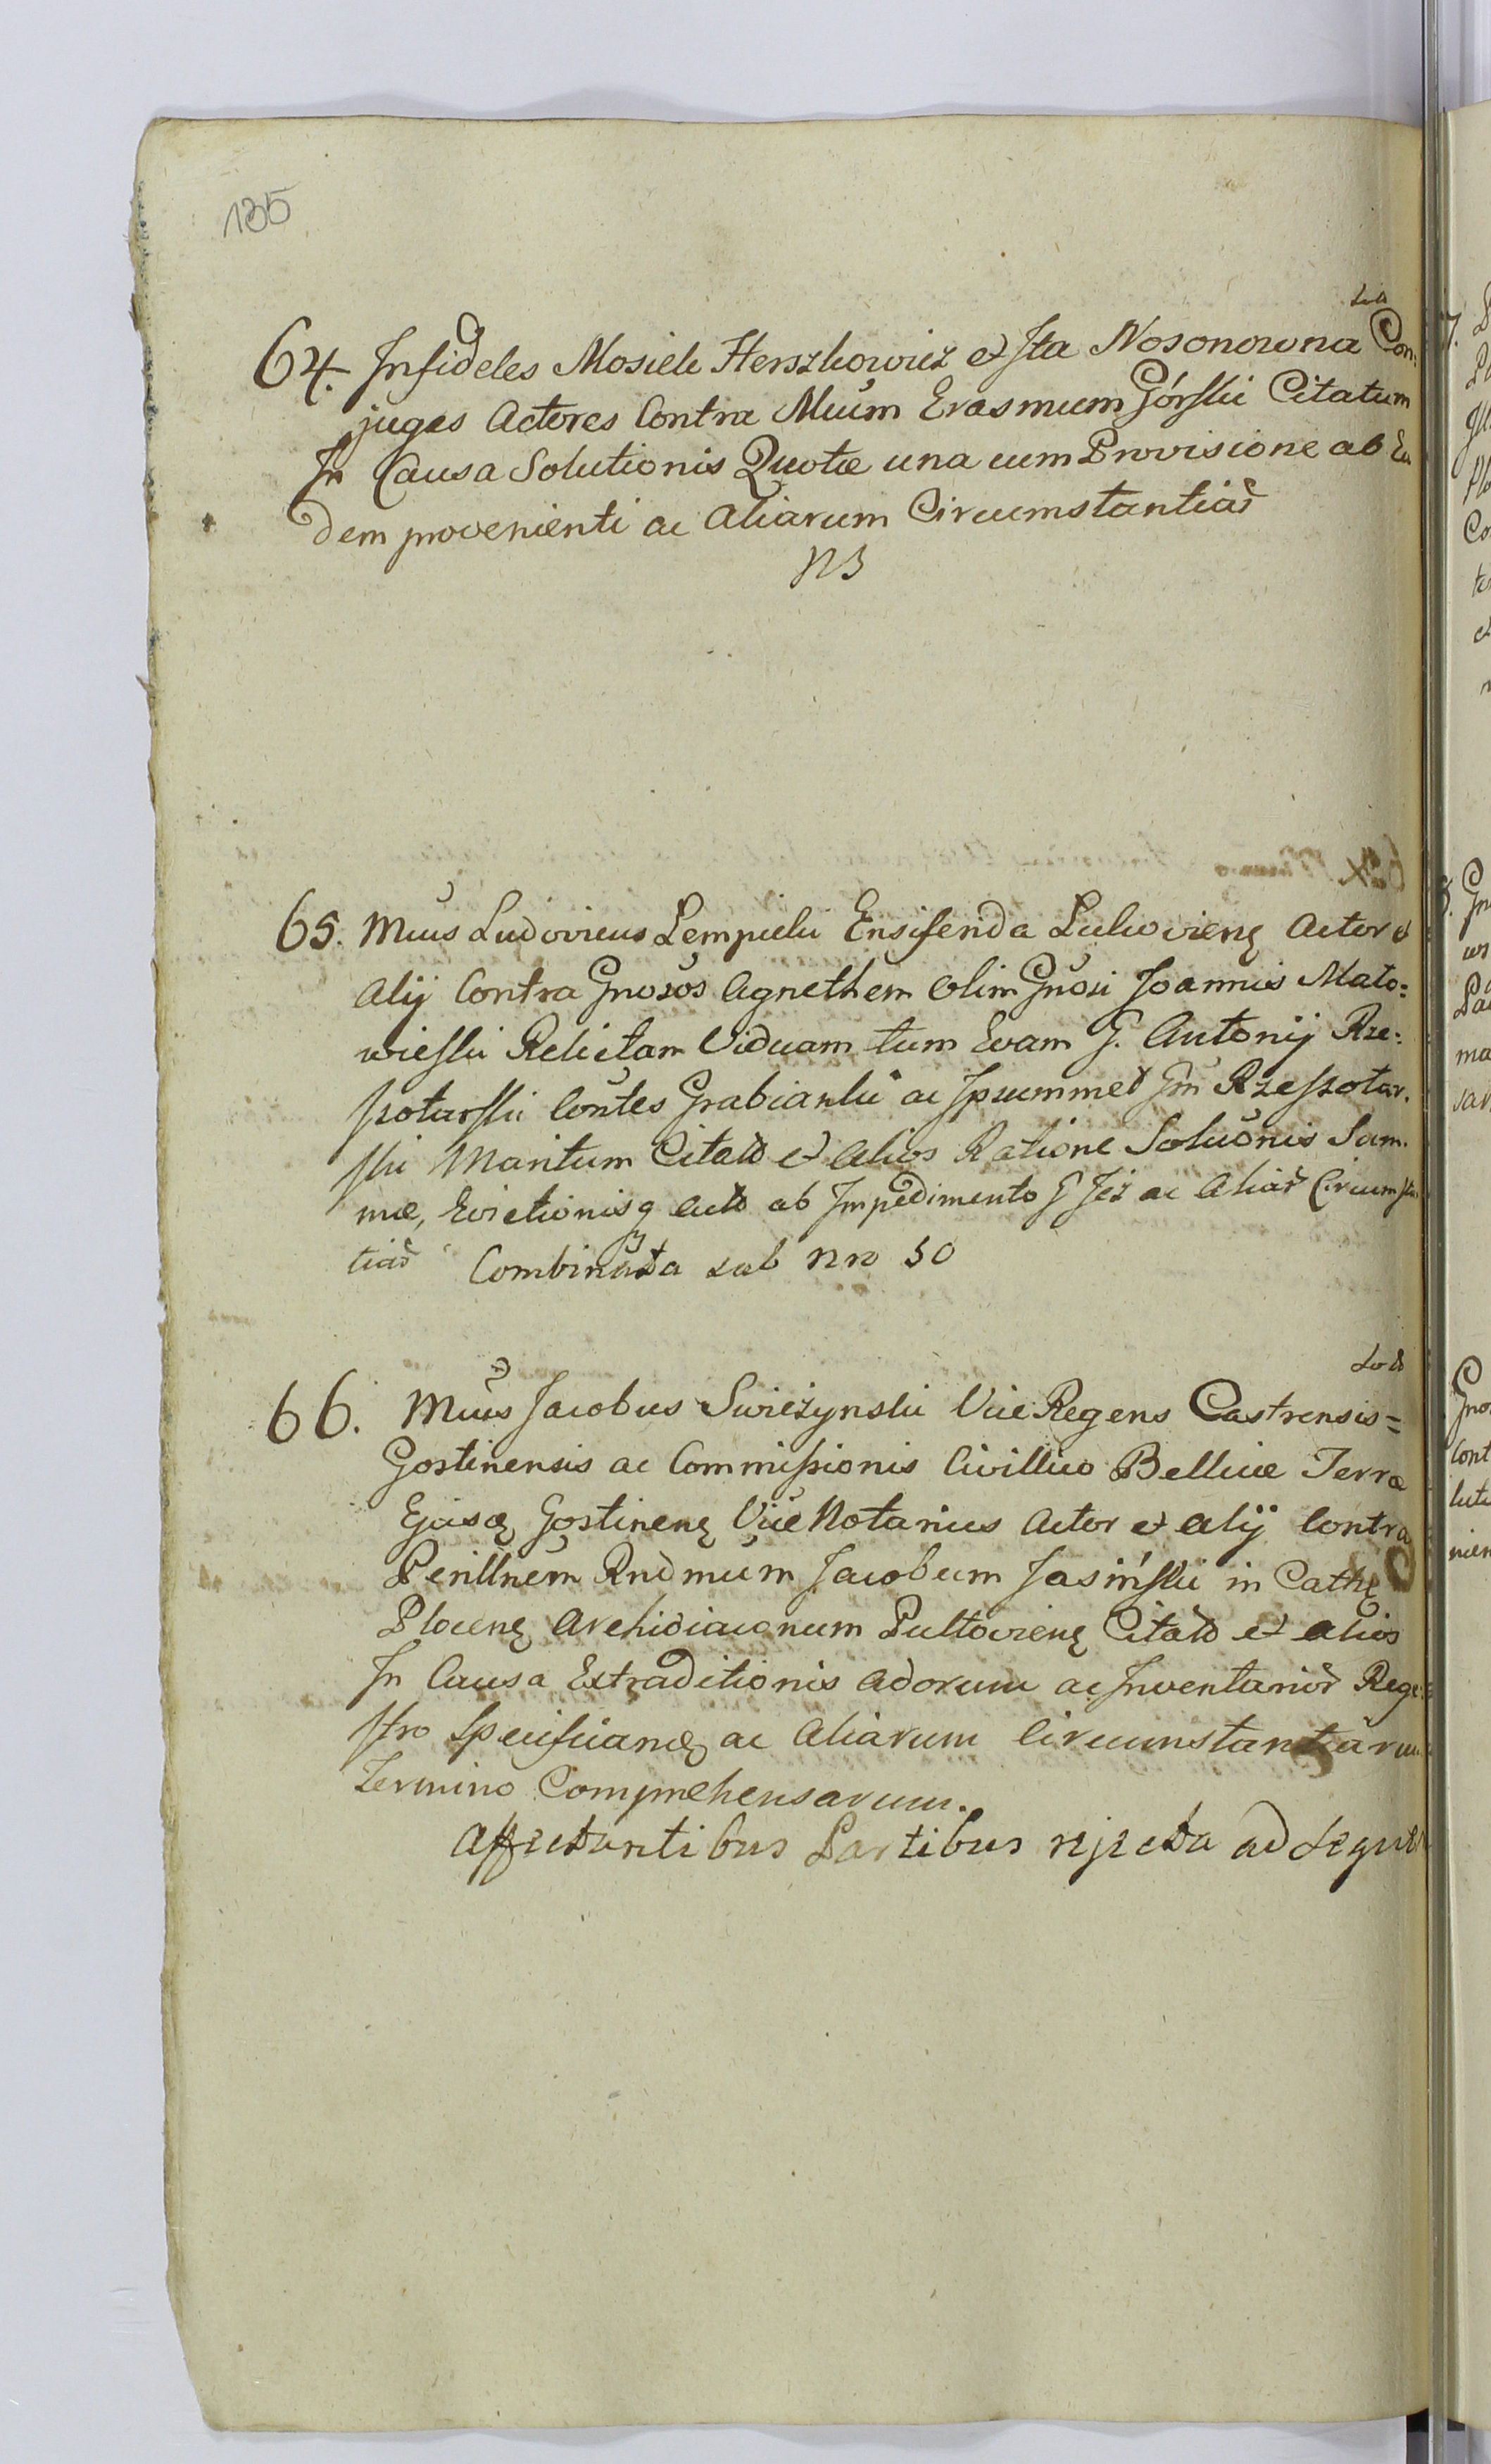 135
64. Infideles Mosiek Herszkowicz et Ita Nosonowna Con:
juges Actores Contra Mnum Erasmum Górski Citatum
In Causa Solutionis Quotæ una cum Provisione ab Ea
dem provenienti ac Aliarum Circumstantiar
NB
65. Mnus Ludovicus Lempicki Ensiferida Lukovieng Actor et
Alij Contra Gnosos Agnethem olim Gnosi Joannis Mato:
wieski Relictam Viduam tum Evam G. Antonij Rze:
szotarski Contes Grabianki ac Ipsummet Gm Rzeszotar.
ski Maritum Citato et Alios Ratione Soluonis Sum.
mæ, Evictionisq ab Impedimento ac Aliar Circumstan
tiar Combinata sub Nro 50
66. Mnus Jacobus Swiezynski Vice Regens Castrensis=
Gostinensis ac Commissionis Civillico Bellicæ Terræ
Ejusq Gostineng Vice Notarius Actor et alij Contra
Perillnem Rndmum Jacobum Jasiński in Cathe
Ploceng Archidiaconum Pultovieng Citato et alios
In Causa Extraditionis Actorum ac Inventarior Rege:
stro Specificand ac Aliarum Circumstantiarum
Termino Comprehensarum.
Affectantibus Partibus rejecta ad